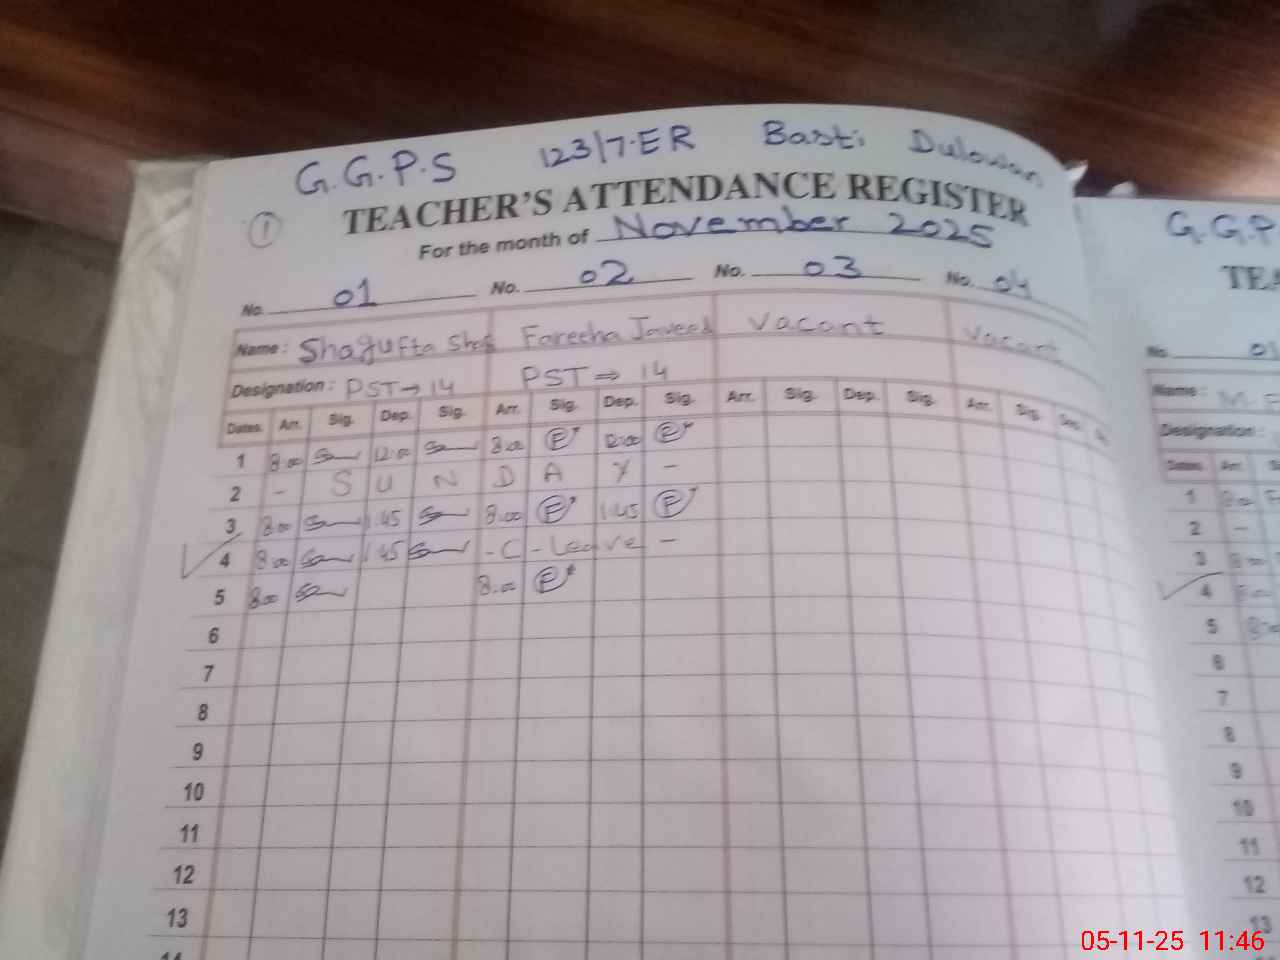 G.G.P.S 123/7-ER Basti Dulowan
1 TEACHER'S ATTENDANCE REGISTER
For the month of November 2025
No. 01 No. 02 No. 03 No. 04
Name: Shagufta Fareeha Javeed Vacant Vacant
Designation: PST→14 PST⇒14
Dates. Arr. Sig. Dep. Sig. Arr. Sig. Dep. Sig. Arr. Sig. Dep. Sig. Arr. Sig. Dep.
1 8.00 12.00 8.00 12.00
2 - S U N D A Y -
3 8.00 1.45 8.00 1.45
4 8.00 1.45 - C - Leave -
5 8.00 8.00
6
7
8
9
10
11
12
13
14
G.G.P
TEA
No. 01
Name: M.
Designation:
Dates. Arr.
1 8.00
2 -
3 8.00
4
5
6
7
8
9
10
11
12
13
05-11-25 11:46